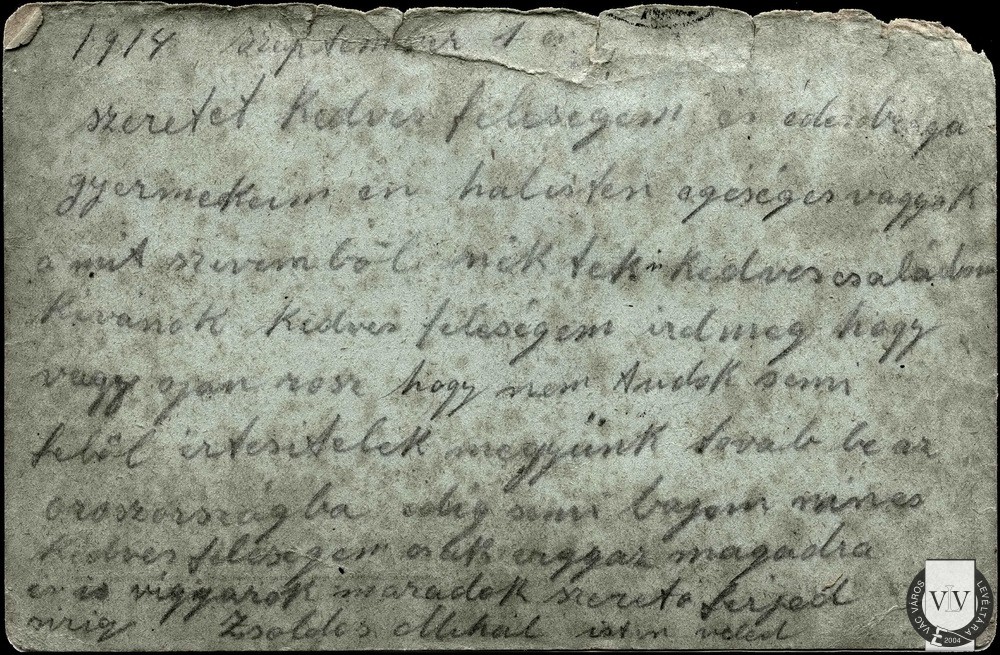 1914 szeptember 1 én
szeretet kedves feleségem és édes drága
gyermekeim én hálisten egéséges vagyok
a mit szivemböl néktek kedves családom
kivánok kedves feleségem ird meg hogy
vagy ojan rosz hogy nem tudok semi
felöl értesitelek megyünk tovab be az
oroszországba edig semi bajom nincs
kedves feleségem csak viggyaz magadra
én is viggyazok maradok szereto ferjed
mig Zsoldos Mihail isten veled
VÁC VÁROS LEVÉLTÁRA
VVL
2004